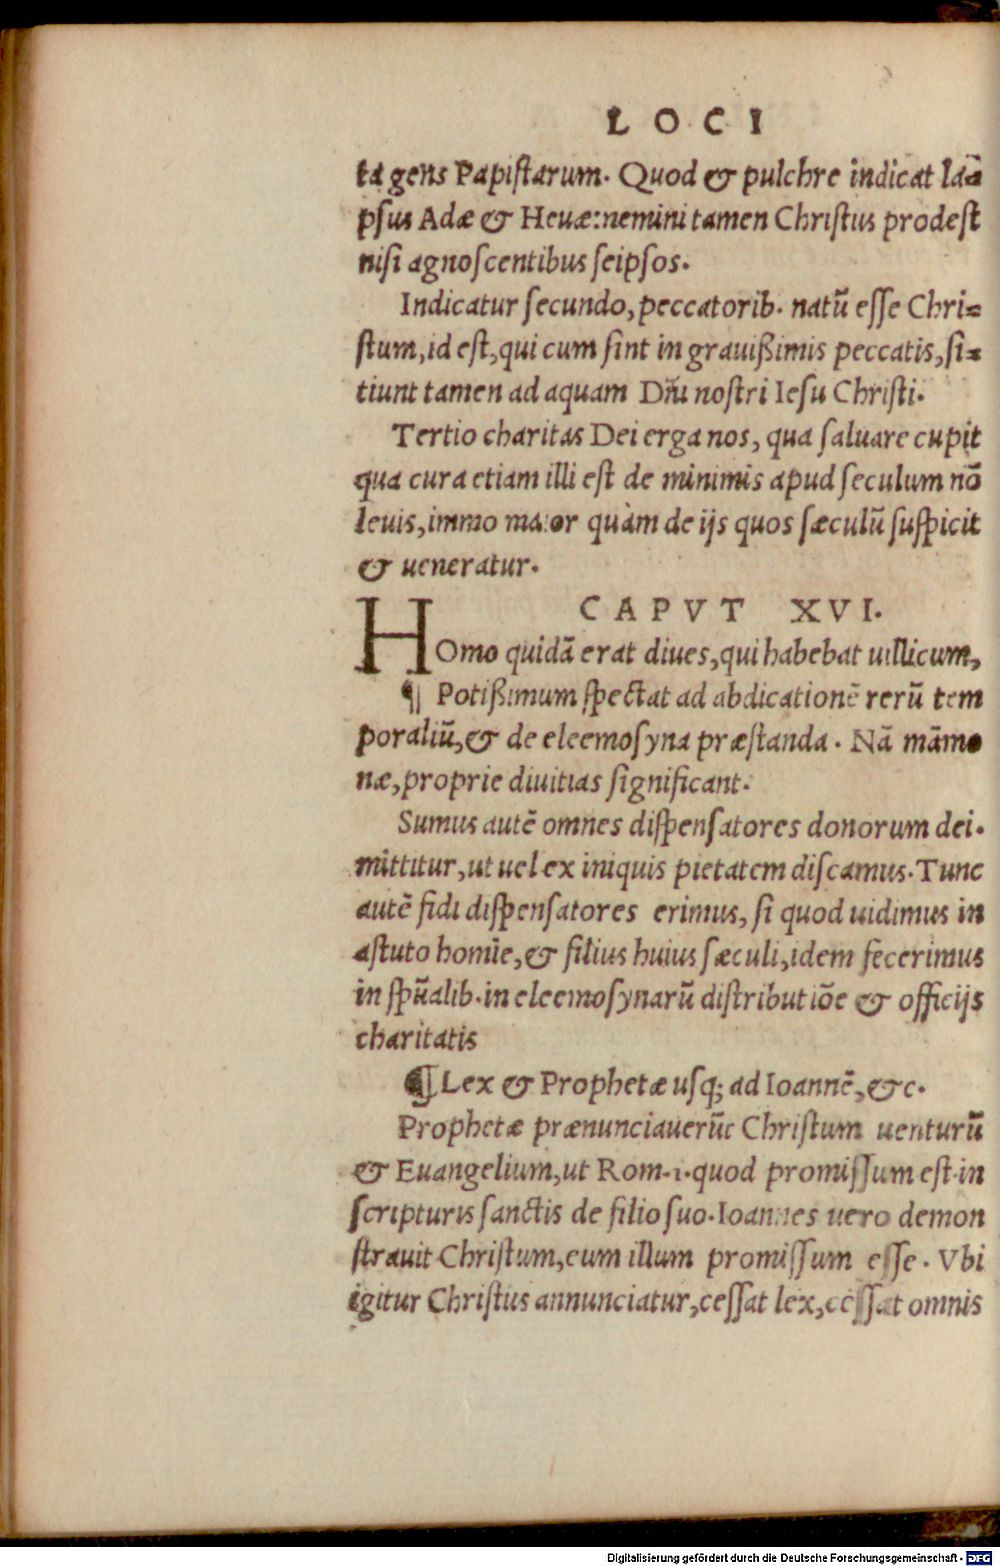 LOCI
ta gens Papistarum. Quod & pulchre indicat laa
psus Adæ & Heuæ: nemini tamen Christus prodest
nisi agnoscentibus seipsos.
Indicatur secundo, peccatorib. natũ esse Chri-
stum, id est, qui cum sint in grauißimis peccatis, si-
tiunt tamen ad aquam Dñi nostri Iesu Christi.
Tertio charitas Dei erga nos, qua saluare cupit
qua cura etiam illi est de minimis apud seculum nõ
leuis, immo maior quàm de ijs quos sæculũ suspicit
& ueneratur.
CAPVT XVI.
HOmo quidã erat diues, qui habebat uillicum,
¶ Potißimum spectat ad abdicationẽ rerũ tem
poraliũ, & de eleemosyna præstanda. Nã mãmo
næ, proprie diuitias significant.
Sumus autẽ omnes dispensatores donorum dei.
mittitur, ut uel ex iniquis pietatem discamus. Tunc
autẽ fidi dispensatores erimus, si quod uidimus in
astuto homĩe, & filius huius sæculi, idem fecerimus
in spũalib. in eleemosynarũ distributiõe & officijs
charitatis
¶ Lex & Prophetæ usq; ad Ioannẽ, &c.
Prophetæ prænunciauerũt Christum uenturũ
& Euangelium, ut Rom. 1. quod promissum est in
scripturis sanctis de filio suo. Ioannes uero demon
strauit Christum, eum illum promissum esse. Vbi
igitur Christus annunciatur, cessat lex, cessat omnis
Digitalisierung gefördert durch die Deutsche Forschungsgemeinschaft - DFG